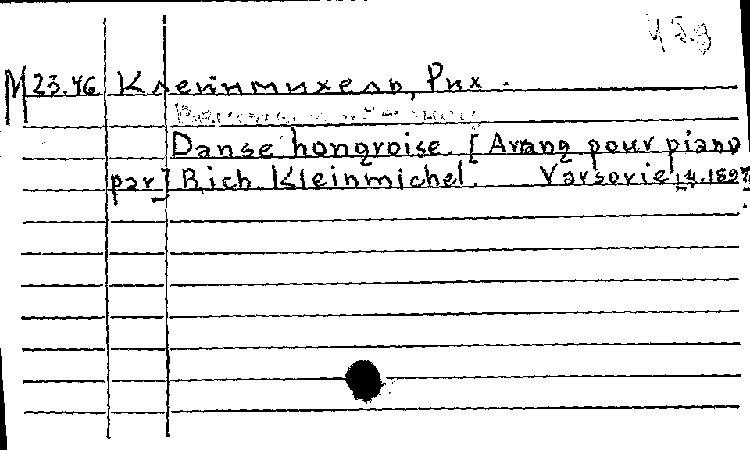 М 23.46 Клейнмихель, Рих.
Danse hongroise. [Arang pour piano
par] Rich. Kleinmichel. Varsovie,